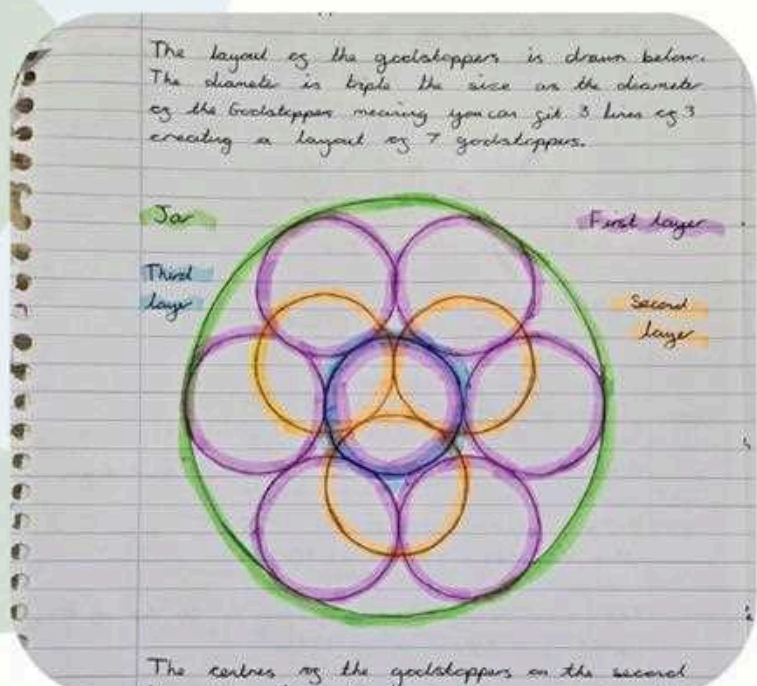 The layout of the godstoppers is drawn below.
The diameter is triple the size as the diameter
of the Godstopper meaning you can fit 3 lines of 3
creating a layout of 7 godstoppers.
Jar
First layer
Third
layer
Second
layer
The centres of the godstoppers on the second